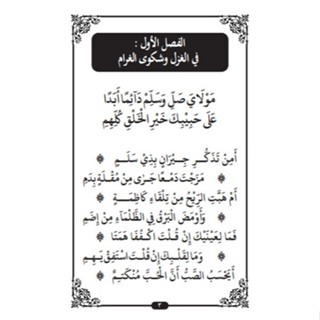 الفصل الأول :
في الغزل وشكوى الغرام
مَوْلَايَ صَلِّ وَسَلِّمْ دَآئِمًا أَبَدًا
عَلَى حَبِيبِكَ خَيْرِ الْخَلْقِ كُلِّهِمِ
أَمِنْ تَذَكُّرِ جِيْرَانٍ بِذِيْ سَلَمِ
مَزَجْتَ دَمْعًا جَرٰى مِنْ مُقْلَةٍ بِدَمِ
أَمْ هَبَّتِ الرِّيْحُ مِنْ تِلْقَاءِ كَاظِمَةٍ
وَأَوْمَضَ الْبَرْقُ فِي الظَّلْمَآءِ مِنْ إِضَمِ
فَمَا لِعَيْنَيْكَ إِنْ قُلْتَ اكْفُفَا هَمَتَا
وَمَا لِقَلْبِكَ إِنْ قُلْتَ اسْتَفِقْ يَهِمِ
أَيَحْسَبُ الصَّبُّ أَنَّ الْحُبَّ مُنْكَتِمٌ
٣